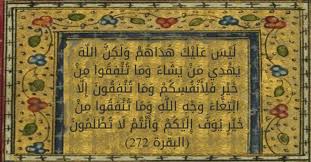 لَيْسَ عَلَيْكَ هُدَاهُمْ وَلَكِنَّ اللَّهَ
يَهْدِي مَنْ يَشَاءُ وَمَا تُنْفِقُوا مِنْ
خَيْرٍ فَلِأَنْفُسِكُمْ وَمَا تُنْفِقُونَ إِلَّا
ابْتِغَاءَ وَجْهِ اللَّهِ وَمَا تُنْفِقُوا مِنْ
خَيْرٍ يُوَفَّ إِلَيْكُمْ وَأَنْتُمْ لَا تُظْلَمُونَ
(البقرة 272)